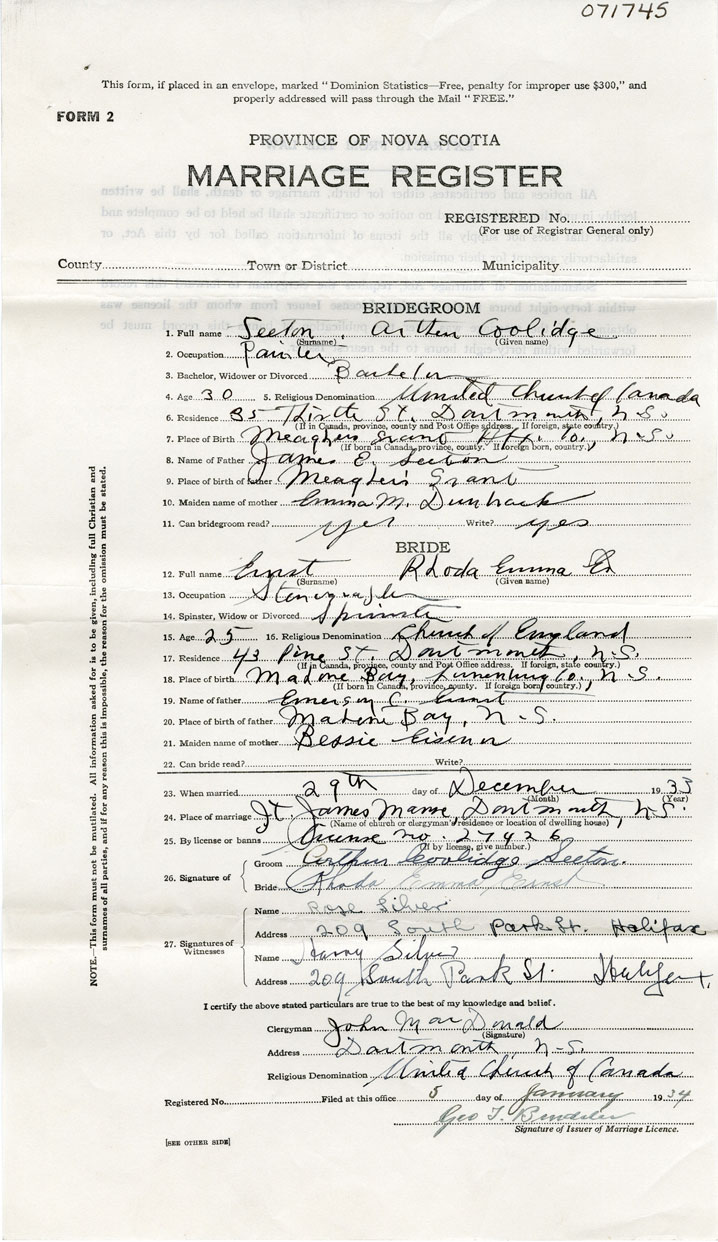 071745
This form, if placed in an envelope, marked "Dominion Statistics—Free, penalty for improper use $300," and
properly addressed will pass through the Mail "FREE."
FORM 2
PROVINCE OF NOVA SCOTIA
MARRIAGE REGISTER
REGISTERED No.
(For use of Registrar General only)
County Town or District Municipality
BRIDEGROOM
1. Full name Seeton, Arthur Coolidge
(Surname) (Given name)
2. Occupation Painter
3. Bachelor, Widower or Divorced Bachelor
4. Age 30 5. Religious Denomination United Church of Canada
6. Residence 85 St. Dartmouth, N.S.
(If in Canada, province, county and Post Office address. If foreign, state country.)
7. Place of Birth Meaghers Grant Hfx. Co., N.S.
(If born in Canada, province, county. If foreign born, country.)
8. Name of Father James E. Seeton
9. Place of birth of father Meaghers Grant
10. Maiden name of mother Emma M. Dunbrack
11. Can bridegroom read? yes Write? yes
BRIDE
12. Full name Ernst Rhoda Emma
(Surname) (Given name)
13. Occupation Stenographer
14. Spinster, Widow or Divorced Spinster
15. Age 25 16. Religious Denomination Church of England
17. Residence 43 Pine St. Dartmouth, N.S.
(If in Canada, province, county and Post Office address. If foreign, state country.)
18. Place of birth Mahone Bay, Lunenburg Co., N.S.
(If born in Canada, province, county. If foreign born, country.)
19. Name of father Emerson C. Ernst
20. Place of birth of father Mahone Bay, N.S.
21. Maiden name of mother Bessie Eisenor
22. Can bride read? Write?
23. When married 29th day of December 1933
(Month) (Year)
24. Place of marriage St. James Manse, Dartmouth, N.S.
(Name of church or clergyman's residence or location of dwelling house)
25. By license or banns License no. 27926
(If by license, give number.)
26. Signature of
Groom Arthur Coolidge Seeton.
Bride Rhoda Emma Ernst
27. Signatures of Witnesses
Name Rose Silver
Address 209 South Park St. Halifax
Name Harry Silver
Address 209 South Park St. Halifax.
I certify the above stated particulars are true to the best of my knowledge and belief.
Clergyman John MacDonald
(Signature)
Address Dartmouth N.S.
Religious Denomination United Church of Canada
Registered No. Filed at this office 5 day of January 1934
Geo T.
Signature of Issuer of Marriage Licence.
[SEE OTHER SIDE]
NOTE.—This form must not be mutilated. All information asked for is to be given, including full Christian and
surnames of all parties, and if for any reason this is impossible, the reason for the omission must be stated.